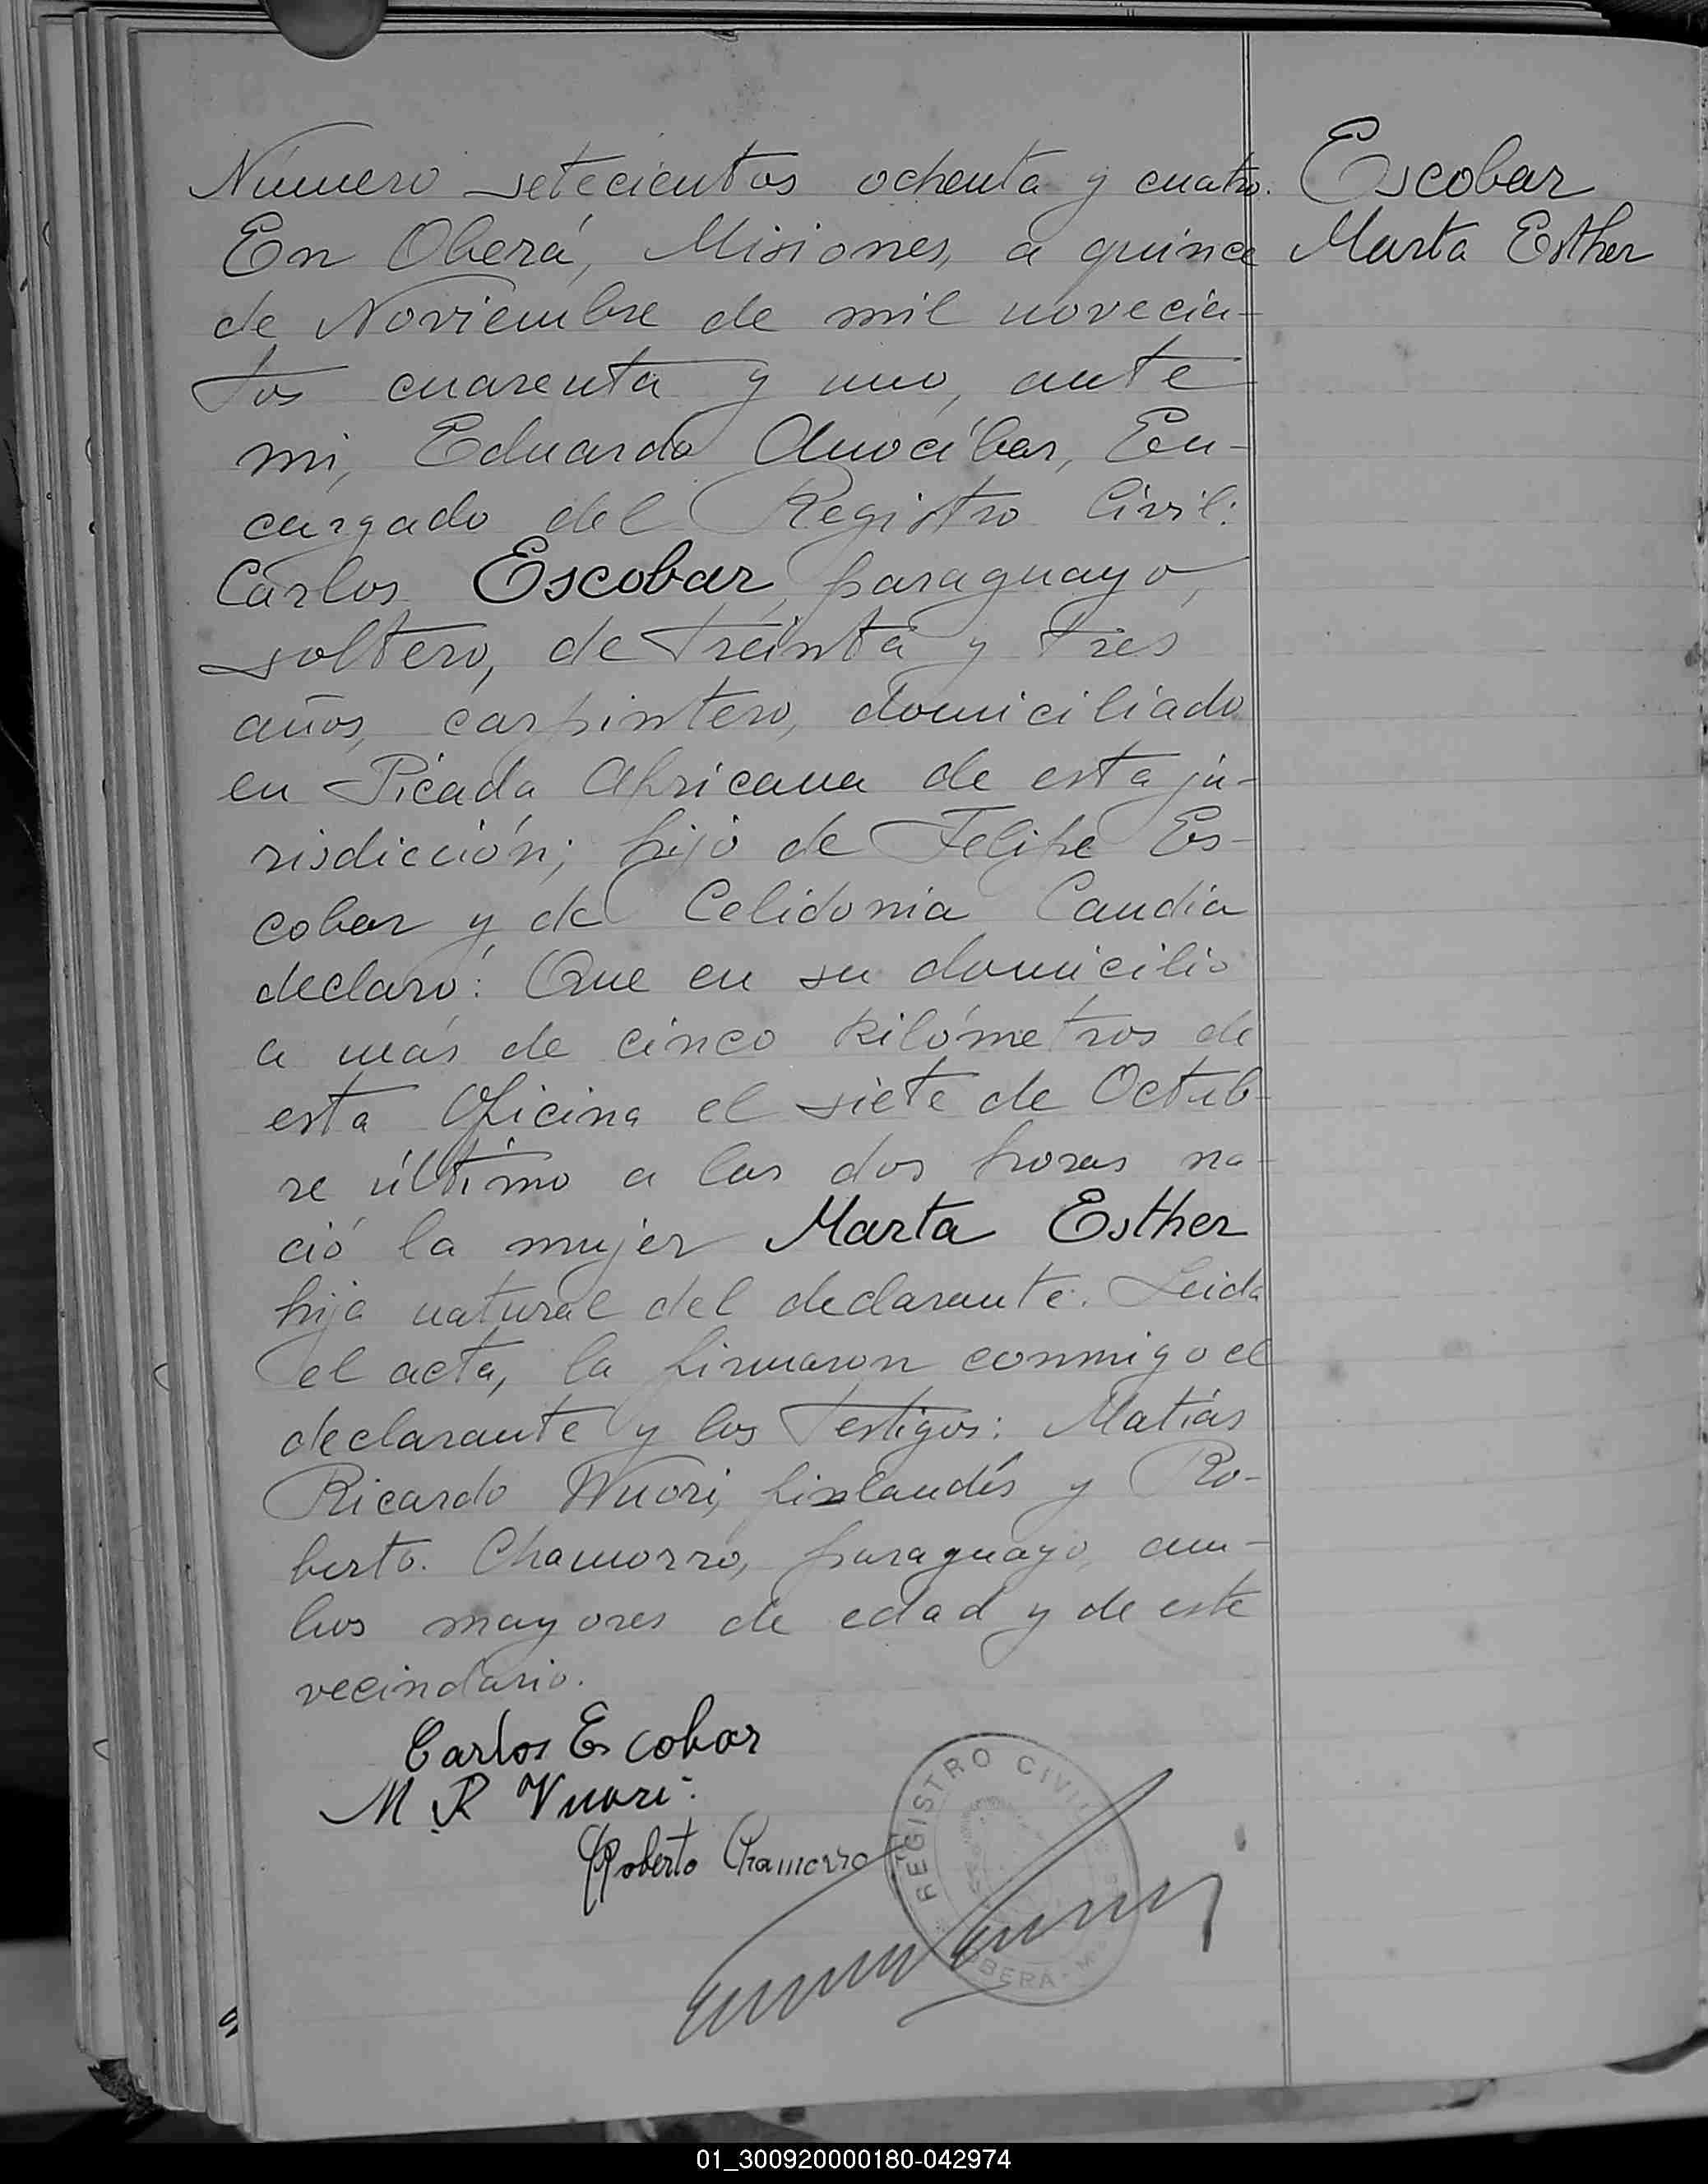 Número setecientos ochenta y cuatro.
Escobar
Marta Esther
En Oberá, Misiones, a quince
de Noviembre de mil novecien-
tos cuarenta y uno, ante
mi, Eduardo Anocíbar, En-
cargado del Registro Civil:
Carlos Escobar, paraguayo,
soltero, de treinta y tres
años, carpintero, domiciliado
en Picada Africana de esta ju-
risdicción; hijo de Felipe Es-
cobar y de Celidonia Candia
declaró: Que en su domicilio
a más de cinco kilómetros de
esta Oficina el siete de Octub-
re último a las dos horas na-
ció la mujer Marta Esther
hija natural del declarante. Leida
el acta, la firmaron conmigo el
declarante y los testigos: Matías
Ricardo Wuori, finlandés y Ro-
berto. Chamorro, paraguayo, am-
bos mayores de edad y de este
vecindario.
Carlos Escobar
M R Vuori
Roberto Chamorro
REGISTRO CIVIL
OBERÁ - M
01_300920000180-042974